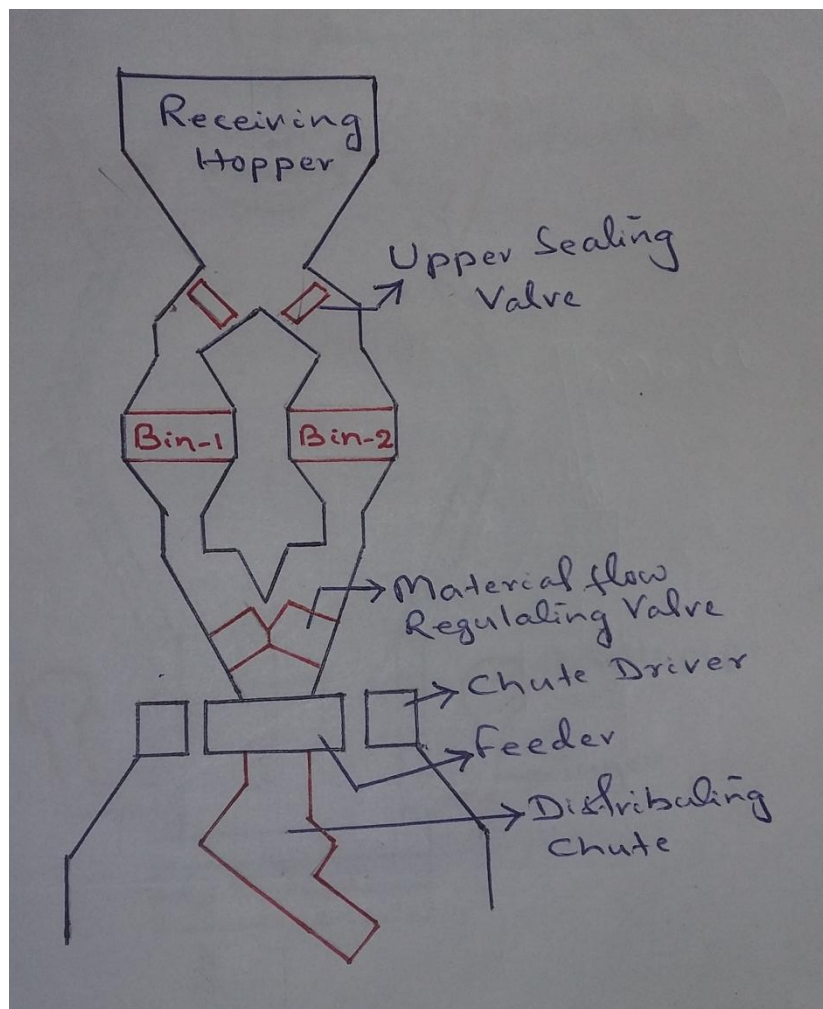 Receiving
Hopper
Upper Sealing
Valve
Bin-1
Bin-2
Material flow
Regulating Valve
Chute Driver
Feeder
Distributing
Chute